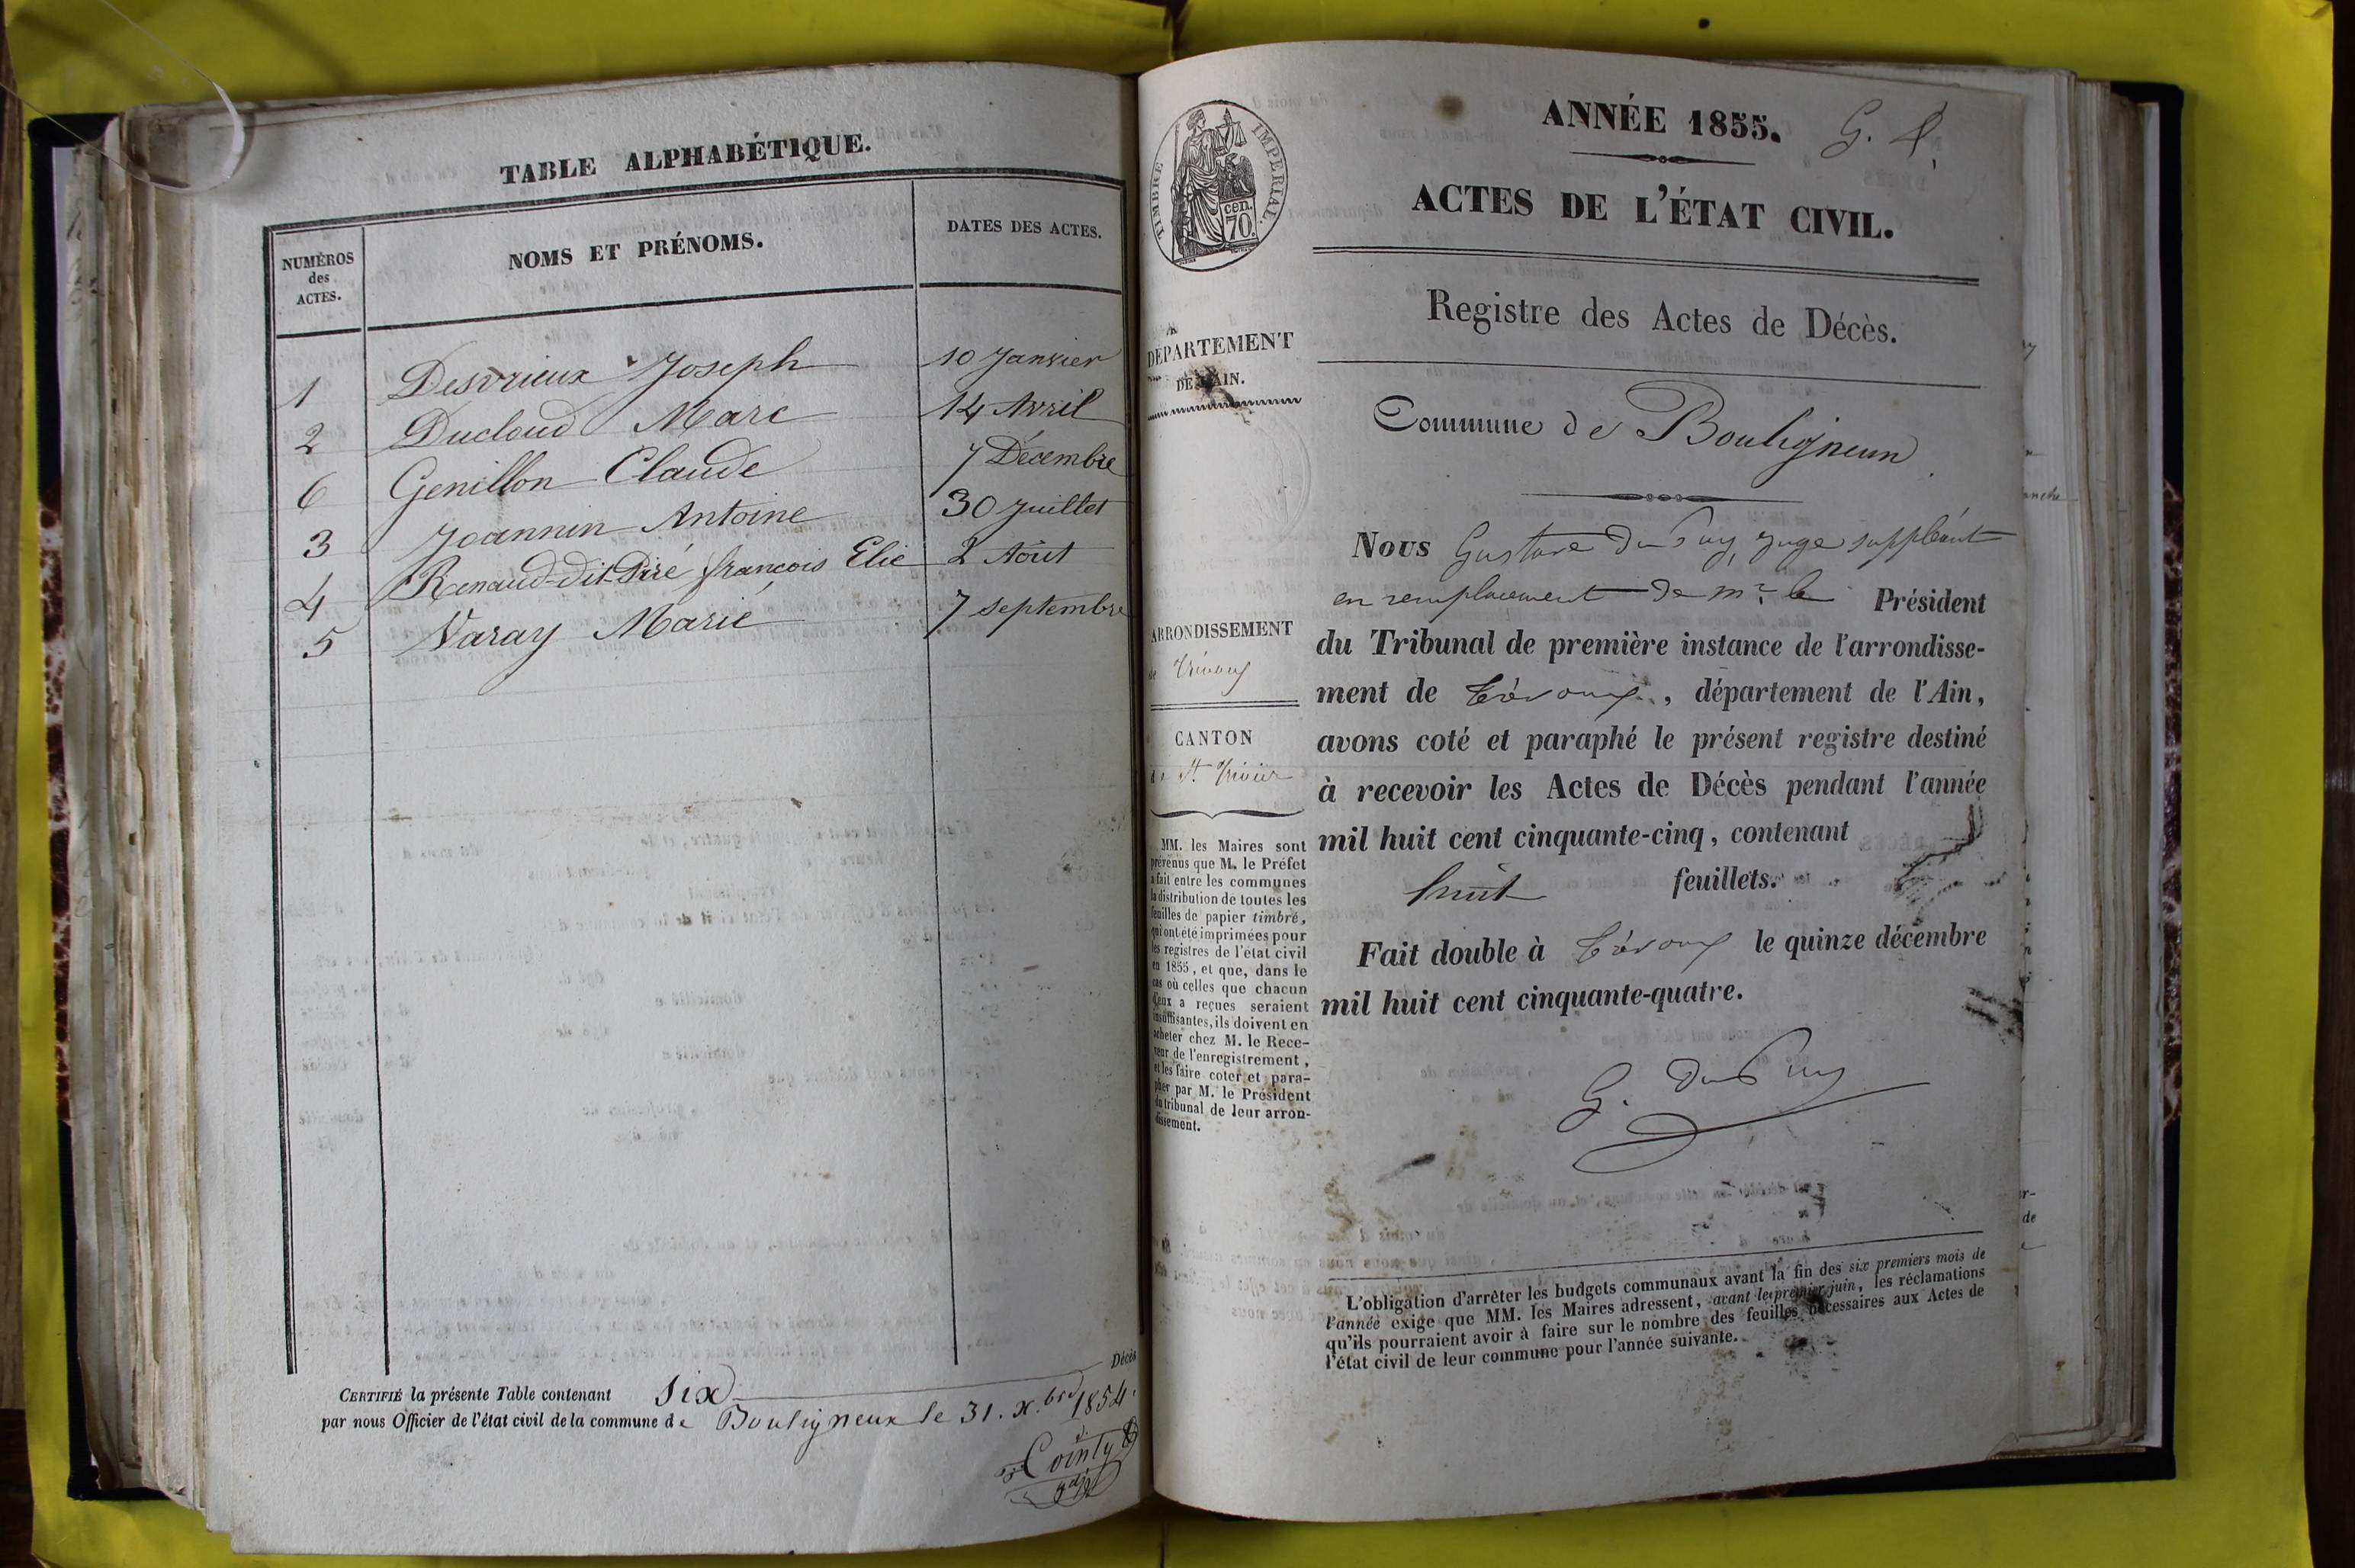 TABLE ALPHABÉTIQUE.
NUMÉROS
des
ACTES.
NOMS ET PRÉNOMS.
DATES DES ACTES.
1 Desvrieux Joseph 10 Janvier
2 Ducloud Marc 14 Avril
6 Genillon Claude 7 Décembre
3 Joannin Antoine 30 Juillet
4 Renaud-dit- françois Elie 2 Août
5 Varay Marie 7 septembre
CERTIFIÉ la présente Table contenant six Décès
par nous Officier de l'état civil de la commune de Bouligneux le 31. X.bre 1854.
Cointy
adj
TIMBRE IMPERIAL.
cen.
70.
ANNÉE 1855. G. d
ACTES DE L'ÉTAT CIVIL.
Registre des Actes de Décès.
DÉPARTEMENT
DE L'AIN.
Commune de Bouligneux
ARRONDISSEMENT
de Trévoux
CANTON
de St. Trivier
MM. les Maires sont
prévenus que M. le Préfet
a fait entre les communes
la distribution de toutes les
feuilles de papier timbré,
qui ont été imprimées pour
les registres de l'état civil
en 1855, et que, dans le
cas où celles que chacun
d'eux a reçues seraient
insuffisantes, ils doivent en
acheter chez M. le Rece-
veur de l'enregistrement,
et les faire coter et para-
pher par M. le Président
du tribunal de leur arron-
dissement.
Nous Gustave du Puy, juge suppléant
en remplacement de mr. le Président
du Tribunal de première instance de l'arrondisse-
ment de Trévoux, département de l'Ain,
avons coté et paraphé le présent registre destiné
à recevoir les Actes de Décès pendant l'année
mil huit cent cinquante-cinq, contenant
huit feuillets.
Fait double à Trévoux le quinze décembre
mil huit cent cinquante-quatre.
G. du Puy
L'obligation d'arrêter les budgets communaux avant la fin des six premiers mois de
l'année exige que MM. les Maires adressent, avant le premier juin, les réclamations
qu'ils pourraient avoir à faire sur le nombre des feuilles nécessaires aux Actes de
l'état civil de leur commune pour l'année suivante.